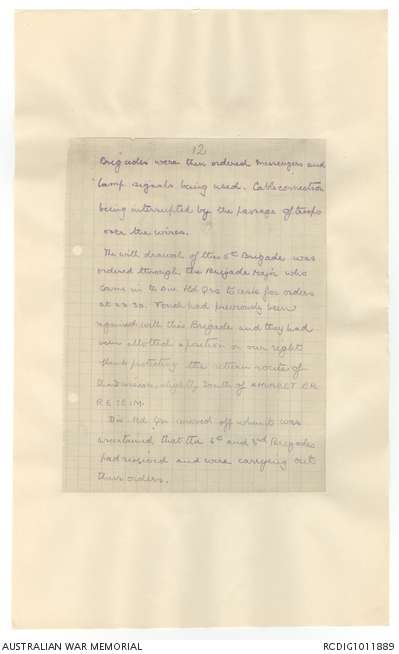 12
Brigades were then ordered messengers and
lamp signals being used. Cable connection
being interrupted by the passage of troops
over the wires.
The with drawal of the 5th Brigade was
ordered through the Brigade Major who
came in to Div Hd Qrs to ask for orders
at 23.30. Touch had previously been
regained with this Brigade and they had
been allotted a position on our right
flank protecting the return route of
the Division, slightly South of KHIRBET ER
RESEIM.
Div Hd Qrs moved off when it was
ascertained that the 6th and 3rd Brigades
had received and were carrying out
their orders.
AUSTRALIAN WAR MEMORIAL
RCDIG1011889